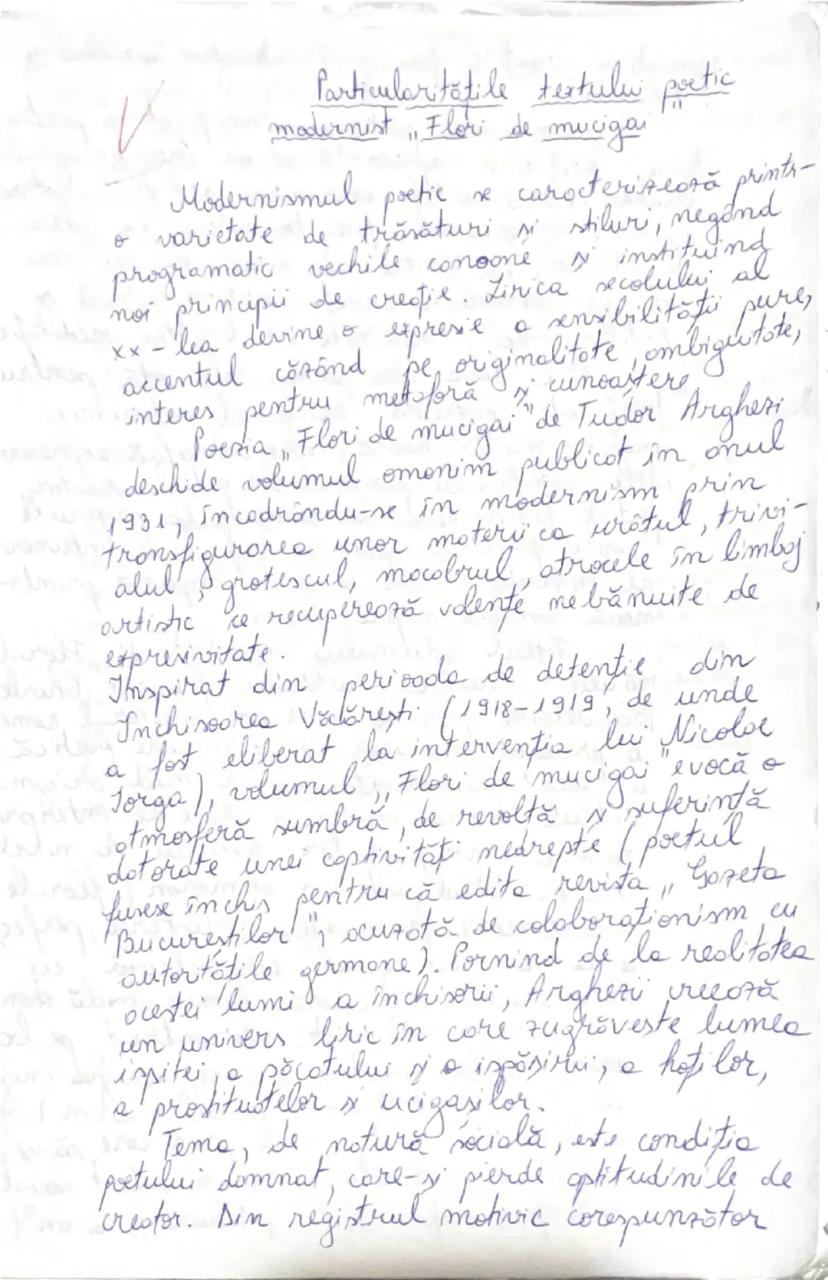 Particularitățile textului poetic
modernist „Flori de mucigai"
Modernismul poetic se caracterizează printr-
o varietate de trăsături și stiluri, negând
programatic vechile canoane și instituind
noi principii de creație. Lirica secolului al
xx-lea devine o expresie a sensibilității pure,
accentul căzând pe originalitate, ambiguitate,
interes pentru metaforă și cunoaștere
Poezia „Flori de mucigai" de Tudor Arghezi
deschide volumul omonim publicat în anul
1931, încadrându-se în modernism prin
transfigurarea unor materii ca urâtul, trivi-
alul, grotescul, macabrul, atrocele în limbaj
artistic ce recuperează valențe nebănuite de
expresivitate.
Inspirat din perioada de detenție din
Închisoarea Văcărești (1918-1919, de unde
a fost eliberat la intervenția lui Nicolae
Iorga), volumul „Flori de mucigai" evocă o
atmosferă sumbră, de revoltă și suferință
datorate unei captivități nedrepte (poetul
fusese închis pentru că edita revista „Gazeta
Bucureștilor", acuzată de colaboraționism cu
autoritățile germane). Pornind de la realitatea
acestei lumi a închisorii, Arghezi creează
un univers liric în care zugrăvește lumea
ispitei, a păcatului și a ispășirii, a hoților,
a prostituatelor și ucigașilor.
Tema, de natură socială, este condiția
poetului damnat, care-și pierde aptitudinile de
creator. Din registrul motivic corespunzător